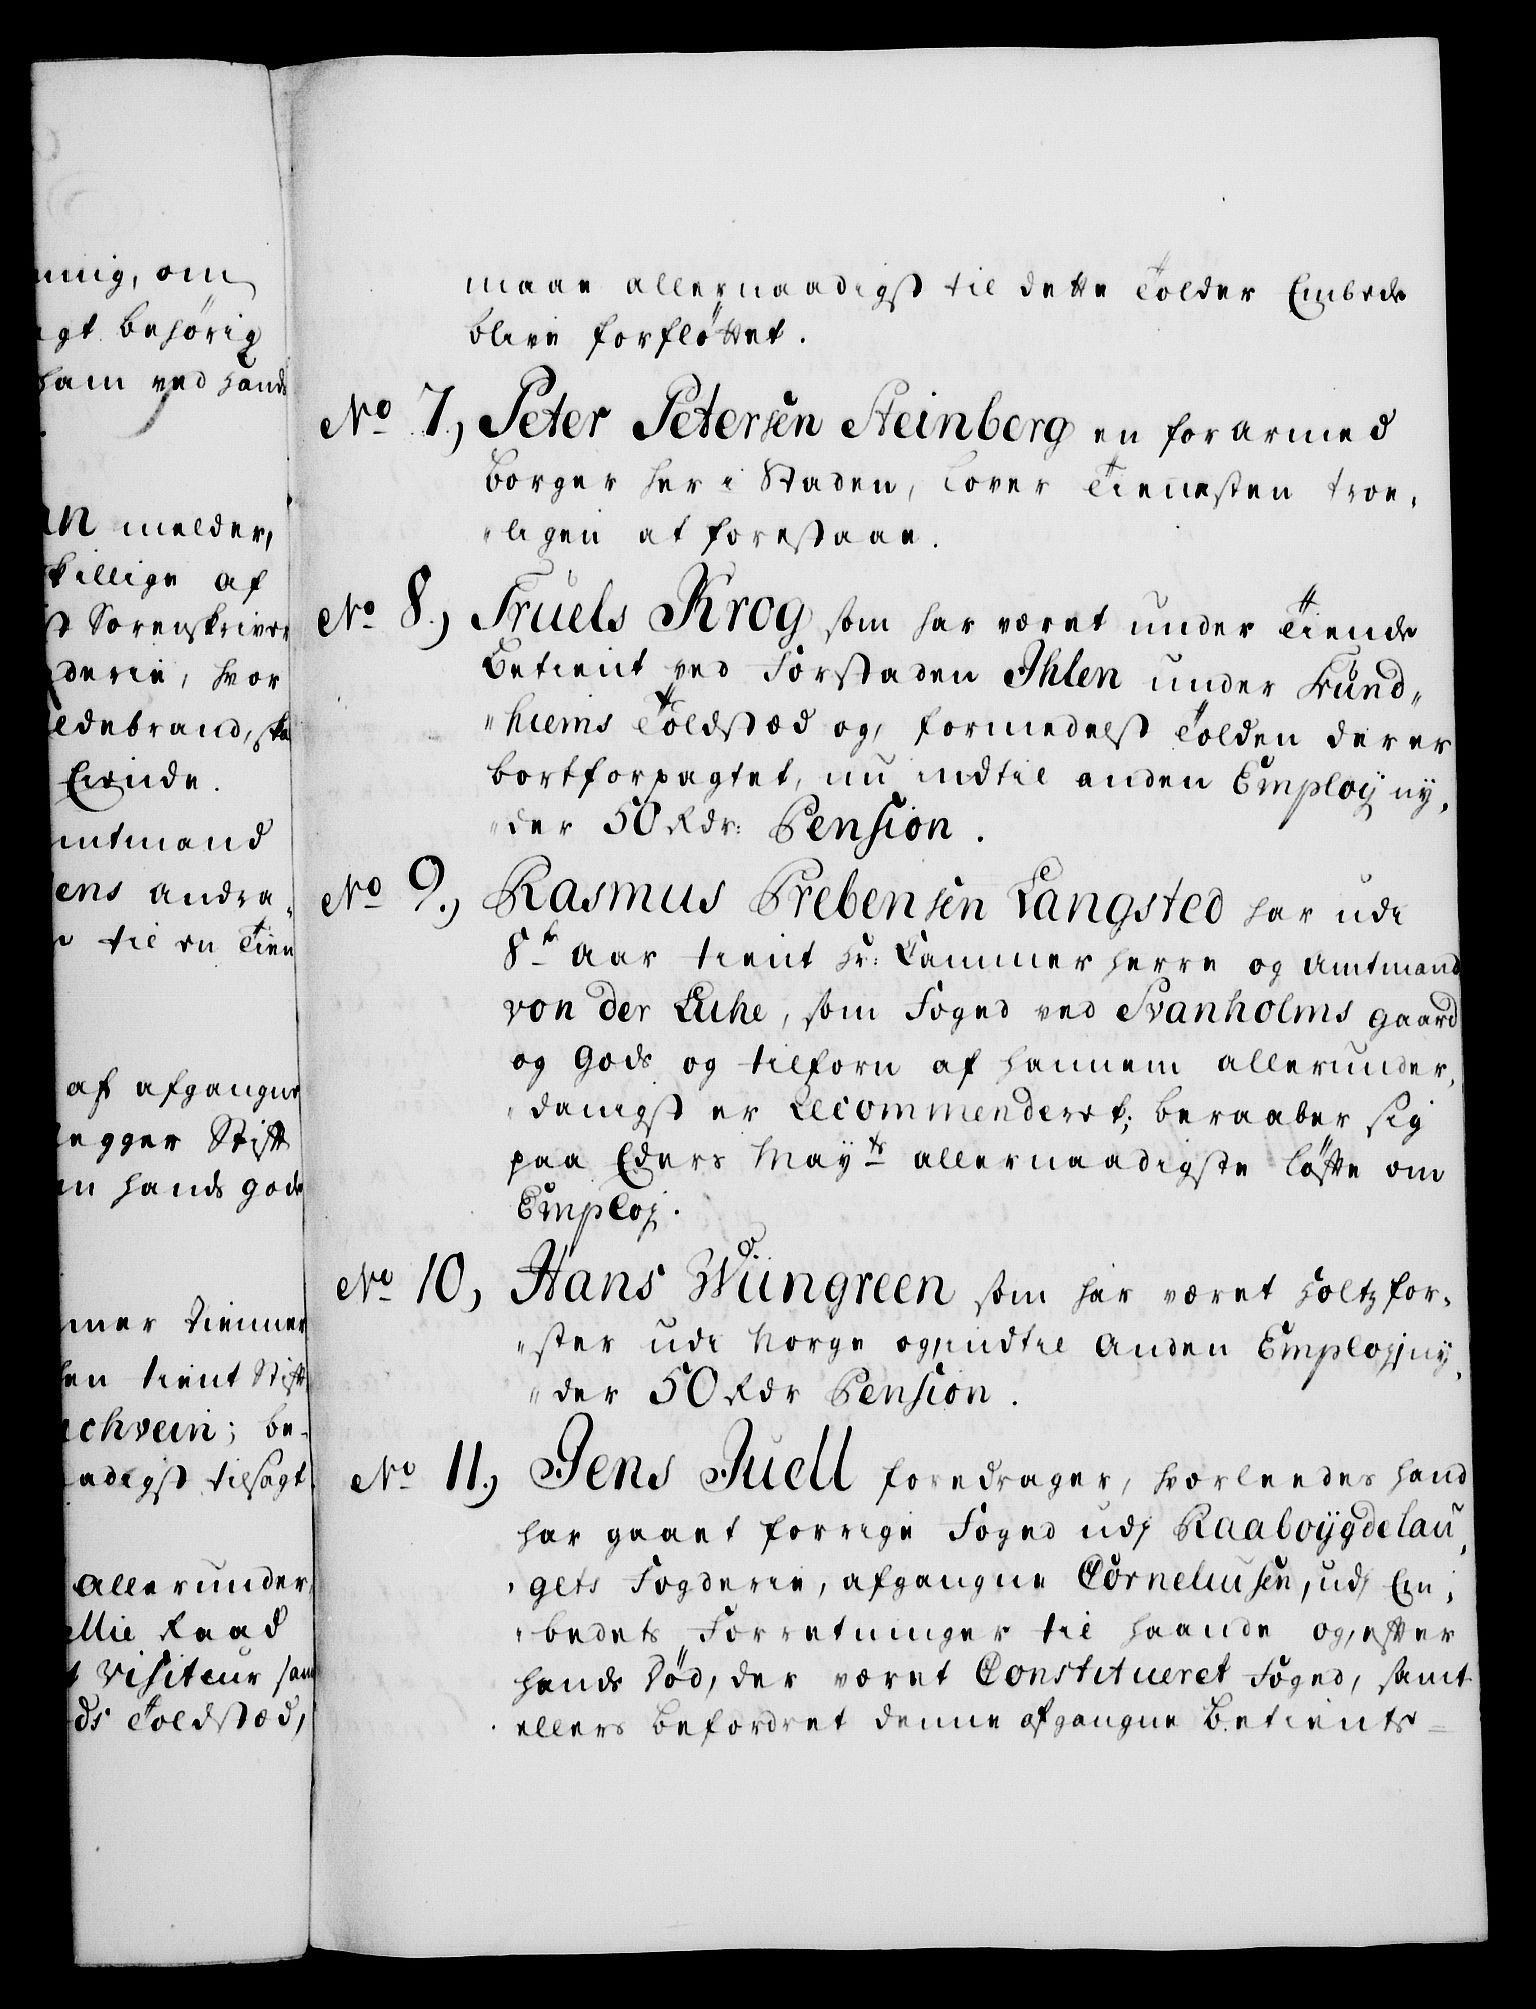 unig, om
agt behörig
ham ved hands
an melder,
skillige af
st Sorenskriver
gderie, hvor
ldebrand, ska
Eiende.
mtmand
ens andra„
til en Tien
af afgangne
legger Stift
en hands gode
mer Tienner
en tient Stift
chvein; be„
adigst tilsagt
allerunder„
llie Raad
t Visiteur sam
ds Toldsted,
maae allernaadigst til dette Tolder Embede
blive forfløttet.
No 7., Peter Petersen Steinberg en forarmed
Borger her i Staden, lover Tienesten troe„
„ligen at forestaae.
No 8., Truels Krog som har været under Tiende
Betient ved Forstaden Ihlen under Trund„
„hiems Toldsted og, formedelst Tolden der er
bortforpagtet, nu indtil anden Employ ny„
„der 50 Rdr: Pension.
No 9., Rasmus Prebensen Langsted har udi
8te Aar tient Hr: Cammer Herre og Amtmand
von der Lühe, som Foged ved Svanholms gaard
og Gods og tilforn af hannem allerunder„
„danigst er Recommenderet; beraaber sig
paa Eders Mayts allernaadigste løfte om
Employ.
No 10, Hans Wüngreen som har været Holtzfor„
„ster udi Norge og, indtil anden Employ, ny„
„der 50 Rdr Pension.
No 11., Jens Juell foredrager, hvorleedes hand
har gaaet forrige Foged udj Raaboÿgdelau„
„gets Fogderie, afgangne Corneliusen, udj Em„
„bedets Forretninger til haande og, efter
hands Død, der været Constitueret Foged, samt
ellers befordret denne afgangne Betients